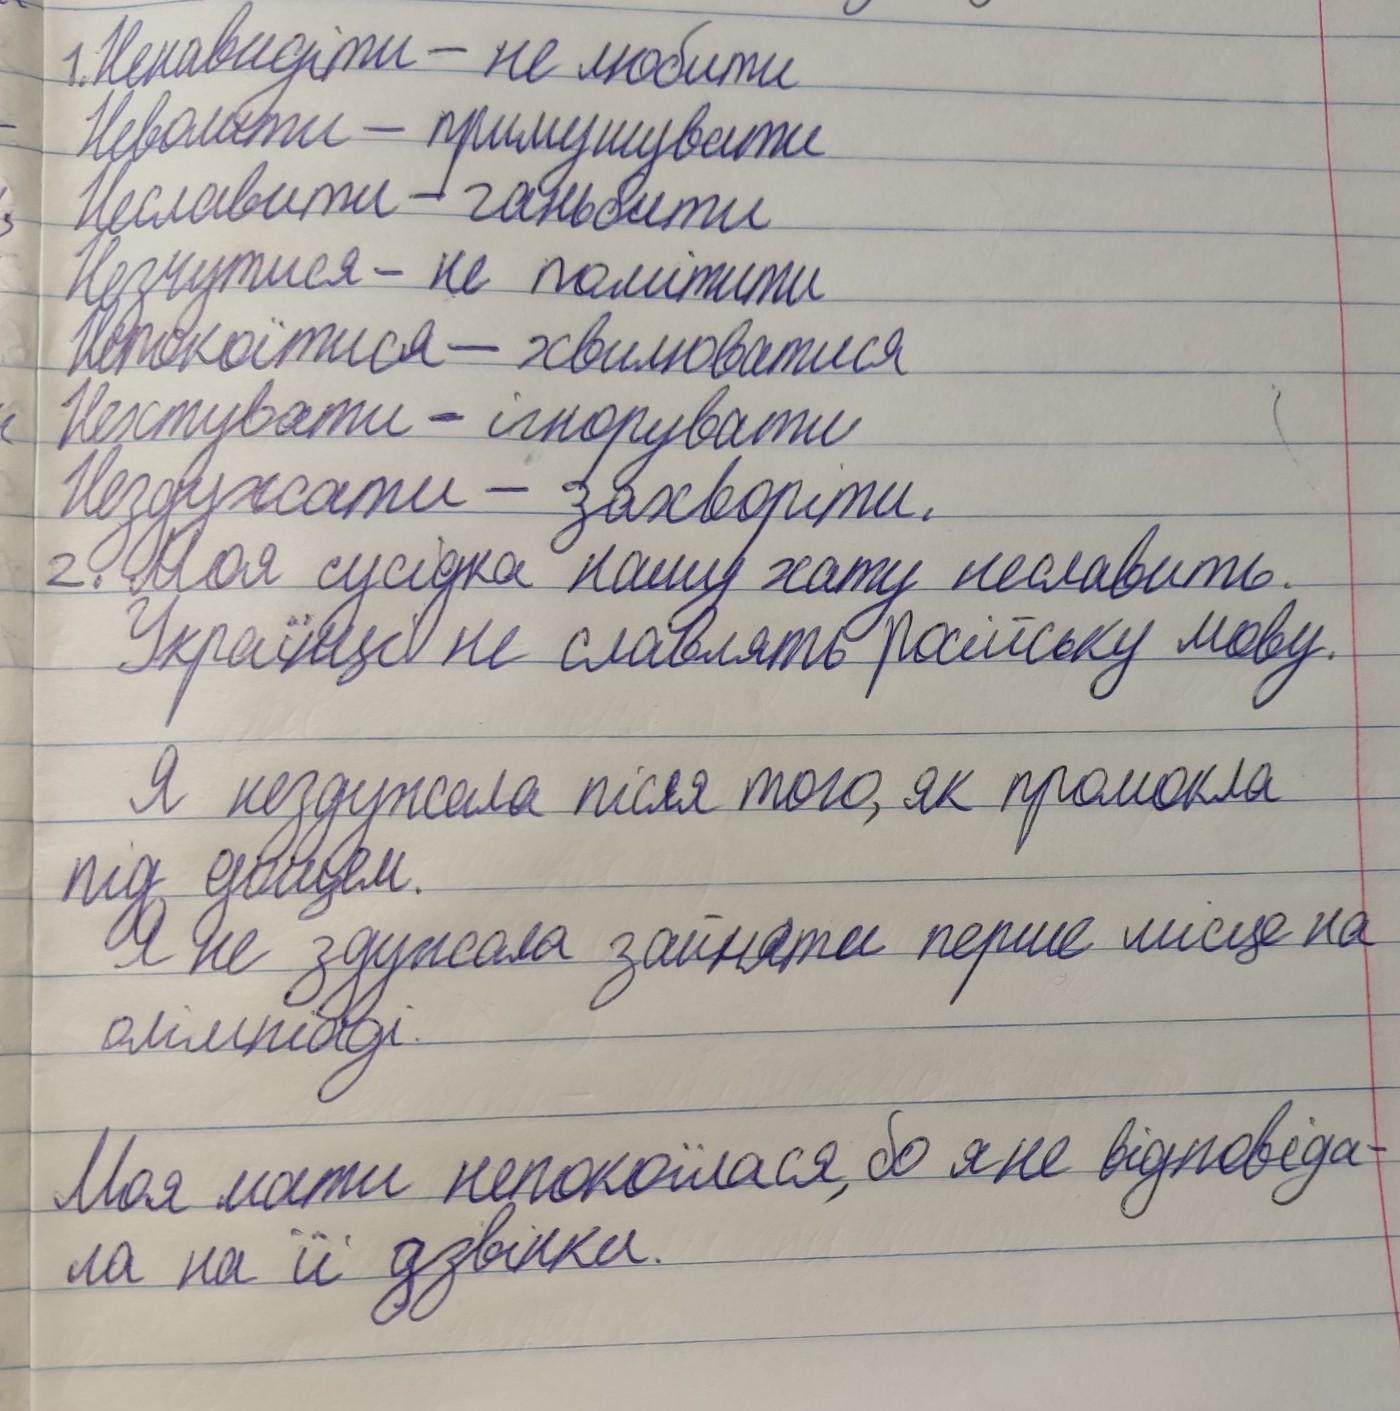 1. Ненавидіти – не любити
Неволити – примушувати
Неславити – ганьбити
Незчутися – не помітити
Непокоїтися – хвилюватися
Нехтувати – ігнорувати
Нездужати – захворіти.
2. Моя сусідка нашу хату неславить.
Українці не славлять російську мову.
Я нездужала після того, як промокла
під дощем.
Я не здужала зайняти перше місце на
олімпіаді.
Моя мати непокоїлася, бо я не відповіда-
ла на її дзвінки.